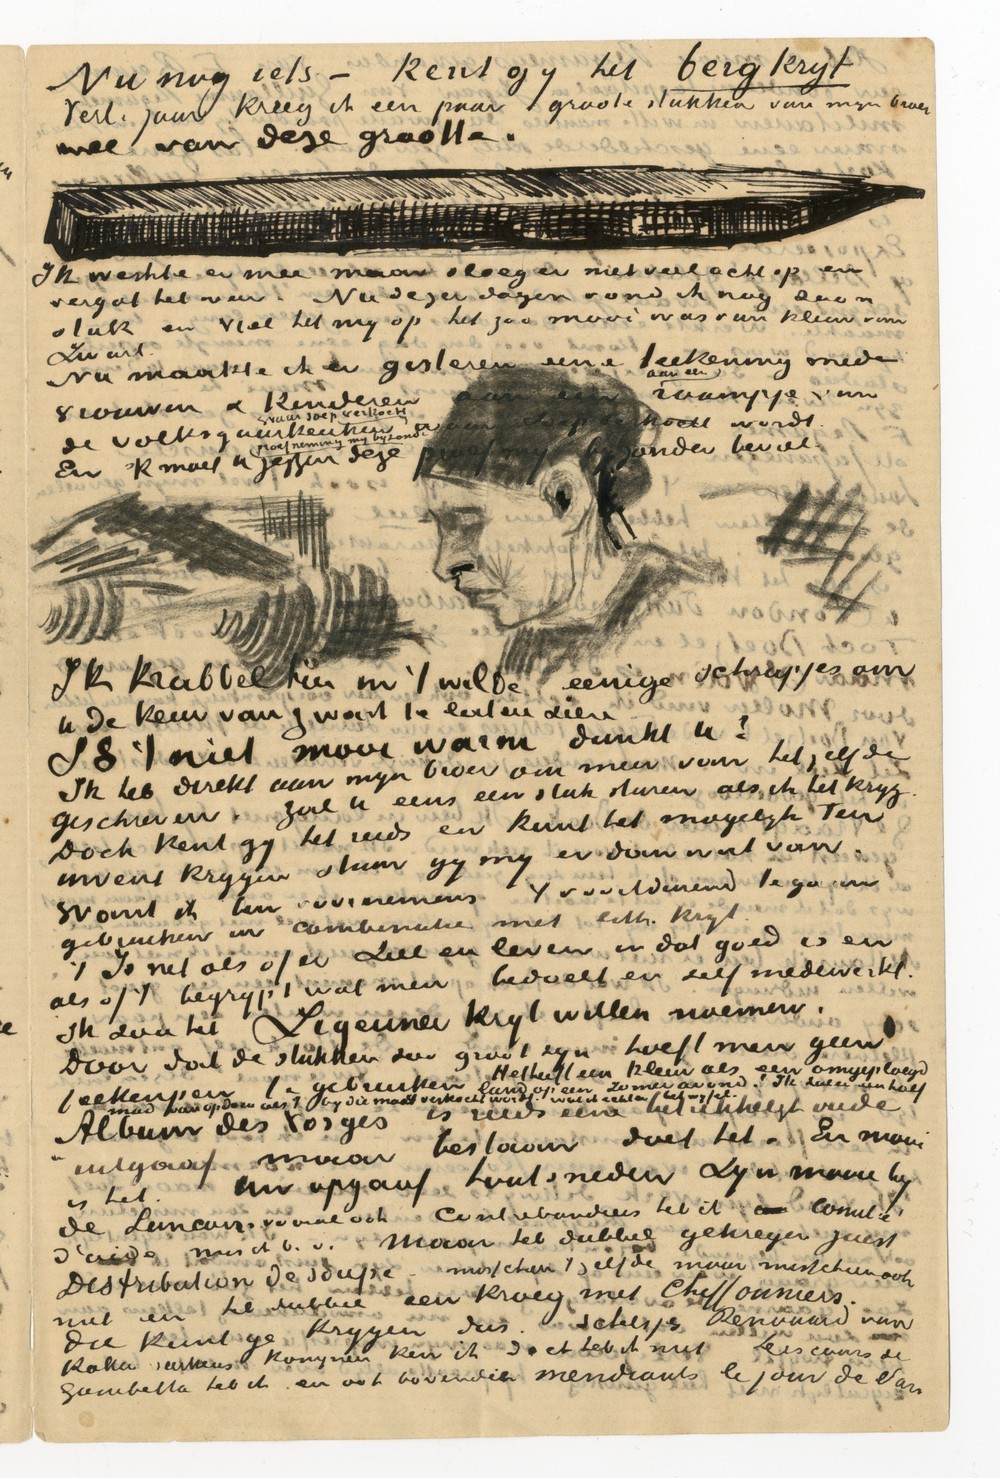 Nu nog iets – kent gy het bergkryt
Verl. jaar kreeg ik een paar groote stukken van myn broer
mee van deze grootte.
Ik werkte er mee maar sloeg er niet veel acht op en
vergat het weer. Nu dezer dagen vond ik nog een
stuk en viel het my op het zoo mooi was van kleur van
Zwart.
Nu maakte ik er gisteren eene teekening mede
vrouwen & kinderen aan een raampje van
aan een
de volksgaarkeuken waar soep verkocht wordt.
waar soep verkocht
En ik moet u zeggen deze proef my byzonder beviel.
proefneming my byzonder
Ik krabbel hier in 't wilde eenige schrapjes om
u de kleur van zwart te laten zien
IS 't niet mooi warm dunkt u?
Ik heb direkt aan myn broer om meer van hetzelfde
geschreven. Zal u eens een stuk sturen als ik het kryg.
Doch kent gy het reeds en kunt het mogelyk ten
uwent krygen stuur gy my er dan wat van.
Want ik ben voornemens 't voortdurend te gaan
gebruiken in combinatie met lith. kryt.
't Is net als of er Ziel en leven in dat goed is en
als of 't begrypt wat men bedoelt en zelf medewerkt.
Ik zou het Zigeuner kryt willen noemen.
Door dat de stukken zeer groot zyn hoeft men geen
teekenpen te gebruiken Het heeft een kleur als een omgeploegd
land op een zomeravond! Ik zal een half
mud koopen als 't by die maat verkocht wordt wat echter
Album des Vosges is reeds eene betrekkelyk oude
uitgaaf maar bestaan doet het. En mooi
is het. Uw opgaaf houtsneden Zyn mooie by
de Lançon, vooral ook Contrebandiers heb ik Comité
d'aide maar het dubbel gekregen juist
Distribution de soupe misschien 't zelfde maar misschien ook
niet en het dubbel een kroeg met Chiffonniers.
Die kunt ge krygen dus. Schets Renouard van
konynen ken ik doch heb ik niet Les cours de
Gambetta heb ik en ook bovendien mendiants le jour de l'an